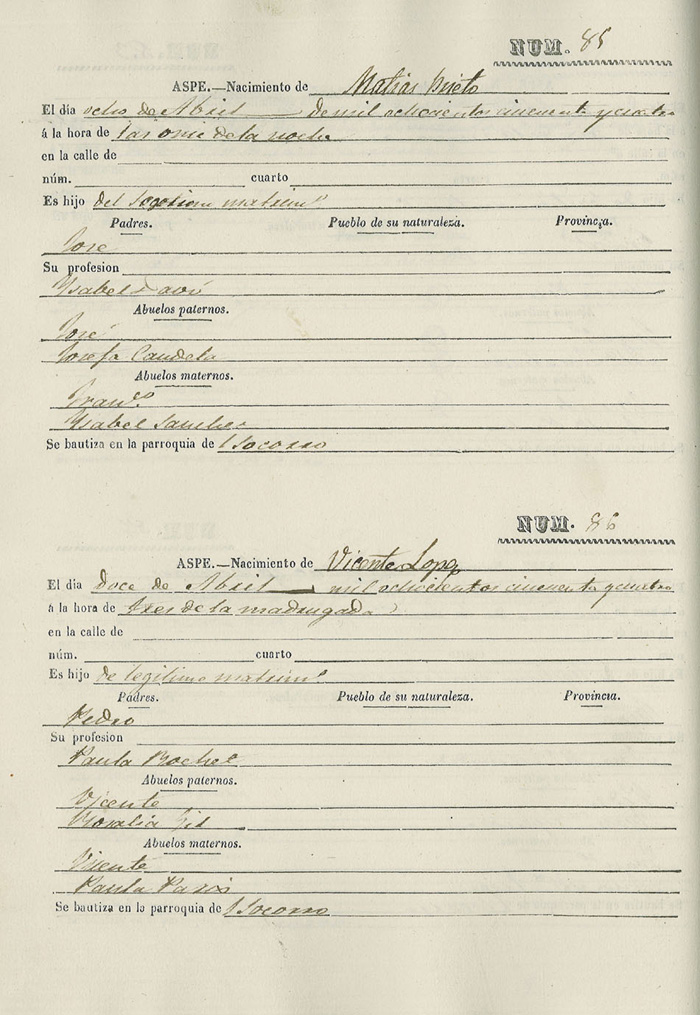 NUM. 85
ASPE.—Nacimiento de Matias Prieto
El día ocho de Abril de mil ochocientos cincuenta y cuatro
á la hora de las once de la noche
en la calle de
núm. cuarto
Es hijo del matrim.º
Padres. Pueblo de su naturaleza. Provincia.
Jose
Su profesion
Ysabel
Abuelos paternos.
José
Josefa Candela
Abuelos maternos.
Fran.co
Ysabel Sanchez
Se bautiza en la parroquia de Socorro
NUM. 86
ASPE.—Nacimiento de Vicente Lopez
El dia doce de Abril mil ochocientos cincuenta y cuatro
á la hora de tres de la madrugada
en la calle de
núm. cuarto
Es hijo de legitimo matrim.º
Padres. Pueblo de su naturaleza. Provincia.
Pedro
Su profesion
Paula
Abuelos paternos.
Vicente
Rosalia Gil
Abuelos maternos.
Vicente
Paula
Se bautiza en la parroquia de Socorro